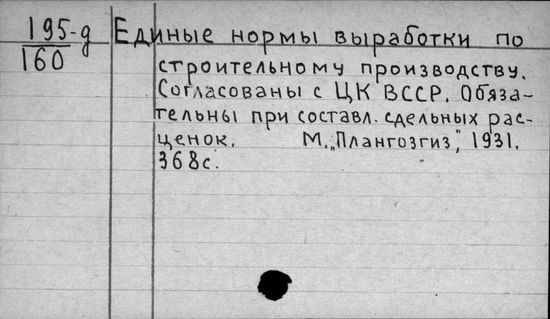 195-д
160
Единые нормы выработки по
строительному производству.
Согласованы с ЦК ВССР. Обяза-
тельны при составл. сдельных рас-
ценок. М. „Плангозгиз", 1931.
368с.